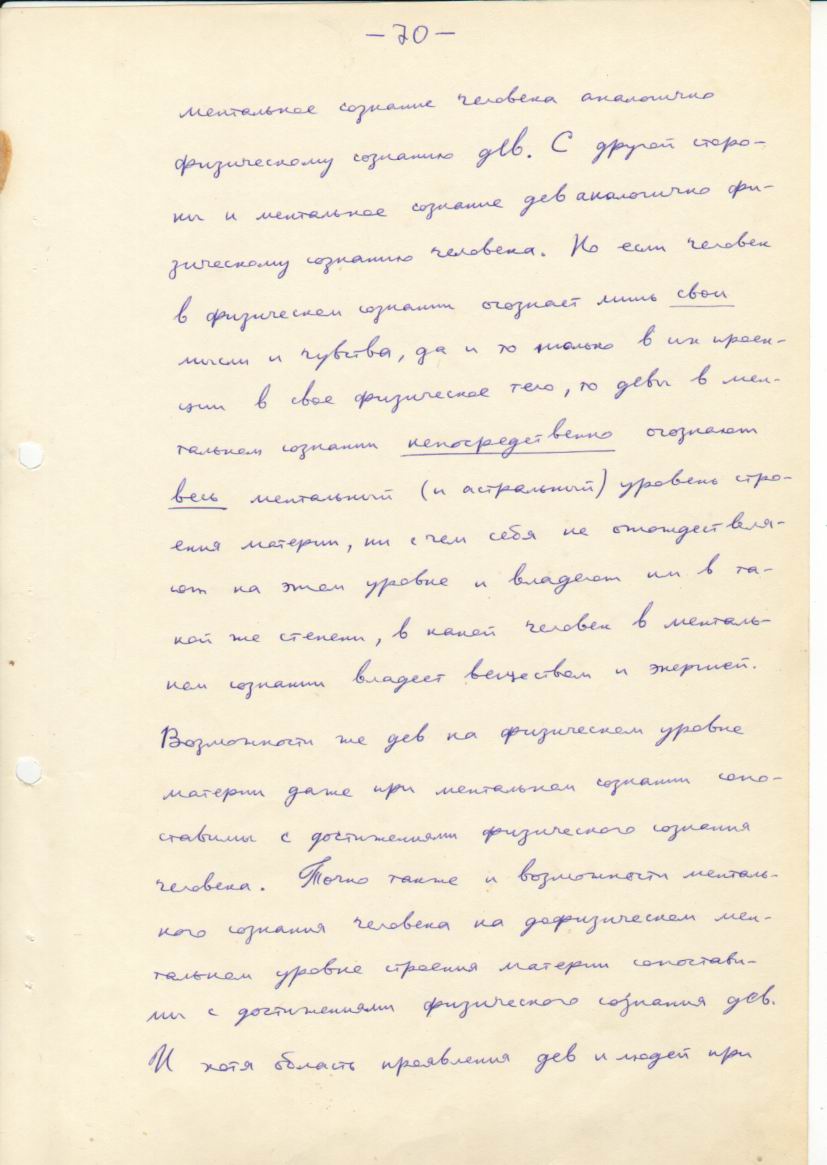 – 70 –
ментальное сознание человека аналогично
физическому сознанию дев. С другой сторо-
ны и ментальное сознание дев аналогично фи-
зическому сознанию человека. Но если человек
в физическом сознании осознает лишь свои
мысли и чувства, да и то только в их проек-
ции в свое физическое тело, то девы в мен-
тальном сознании непосредственно осознают
весь ментальный (и астральный) уровень стро-
ения материи, ни с чем себя не отождествля-
ют на этом уровне и владеют им в та-
кой же степени, в какой человек в менталь-
ном сознании владеет веществом и энергией.
Возможности же дев на физическом уровне
материи даже при ментальном сознании сопо-
ставимы с достижениями физического сознания
человека. Точно также и возможности менталь-
ного сознания человека на дофизическом мен-
тальном уровне строения материи сопостави-
мы с достижениями физического сознания дев.
И хотя область проявления дев и людей при